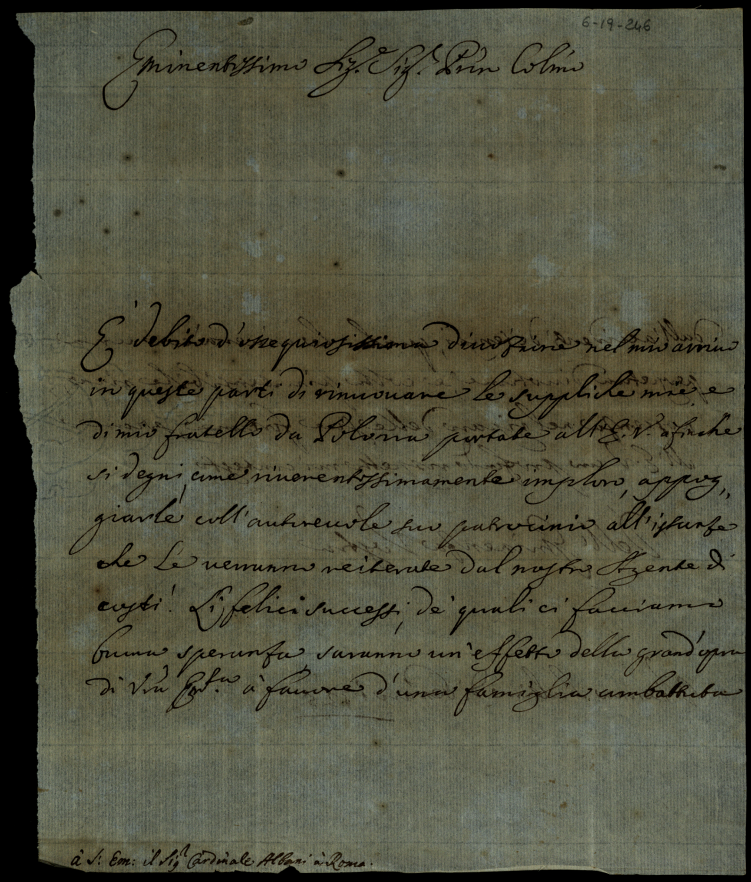 6-19-246
Eminentissimo Sig.e Sig.r Prin Colmo
E' debito d'ossequiosissima divozione nel mio arrivo
in queste parti di rinuovare le suppliche mie, e
di mio fratello da Polonia portate all'E: V. afinche
si degni come riverentissimamente imploro, appog,,
giarle coll'autorevole suo patrocinio all'istanze
che Le verranno reiterate dal nostro Agente di
costì. Li felici successi, de' quali ci facciamo
buona speranza, saranno un'effetto della grand'opra
di Vra Em.za à favore d'una famiglia
à S: Em: il Sig.r Cardinale Albani à Roma.